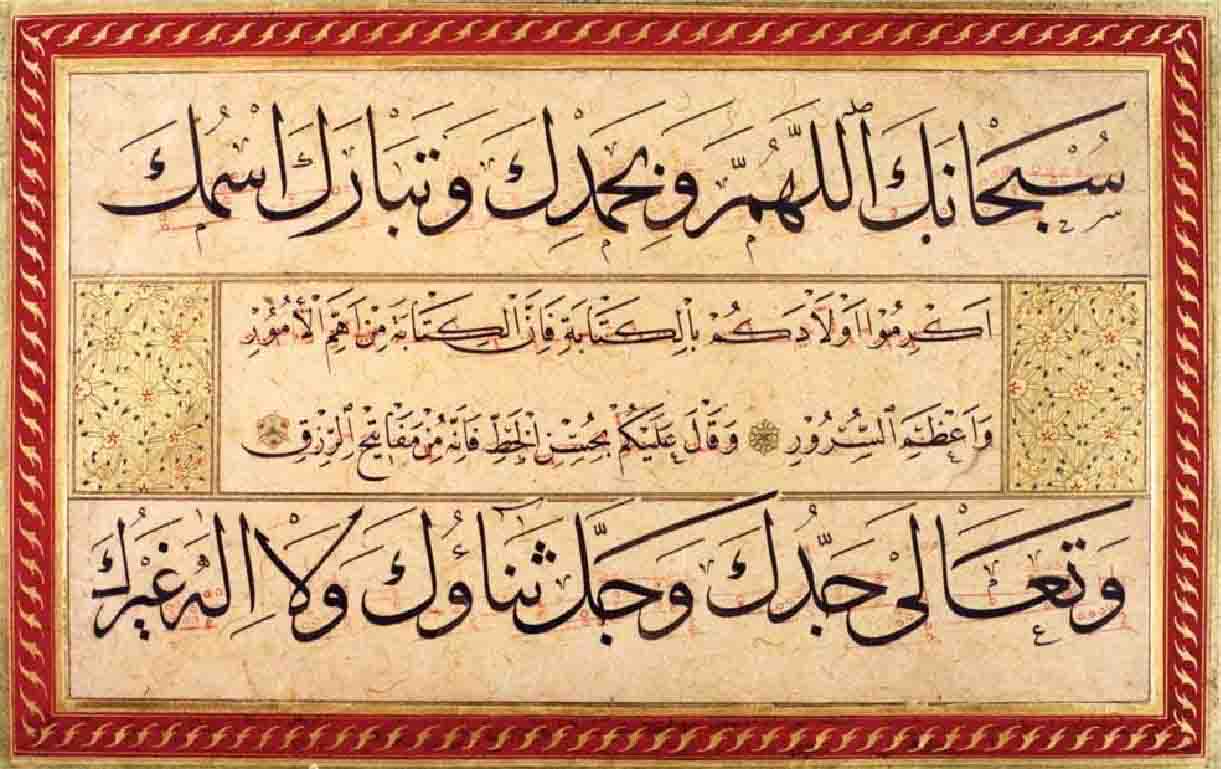 سُبْحَانَكَ اللَّهُمَّ وَبِحَمْدِكَ وَتَبَارَكَ اسْمُكَ
اَكْرِمُوا اَوْلَادَكُمْ بِالْكِتَابَةِ فَاِنَّ الْكِتَابَةَ مِنْ اَهَمِّ الْأُمُورِ
وَاَعْظَمِ السُّرُورِ وَقَالَ عَلَيْكُمْ بِحُسْنِ الْخَطِّ فَاِنَّهُ مِنْ مَفَاتِيحِ الرِّزْقِ
وَتَعَالَى جَدُّكَ وَجَلَّ ثَنَاؤُكَ وَلَا اِلَهَ غَيْرُكَ